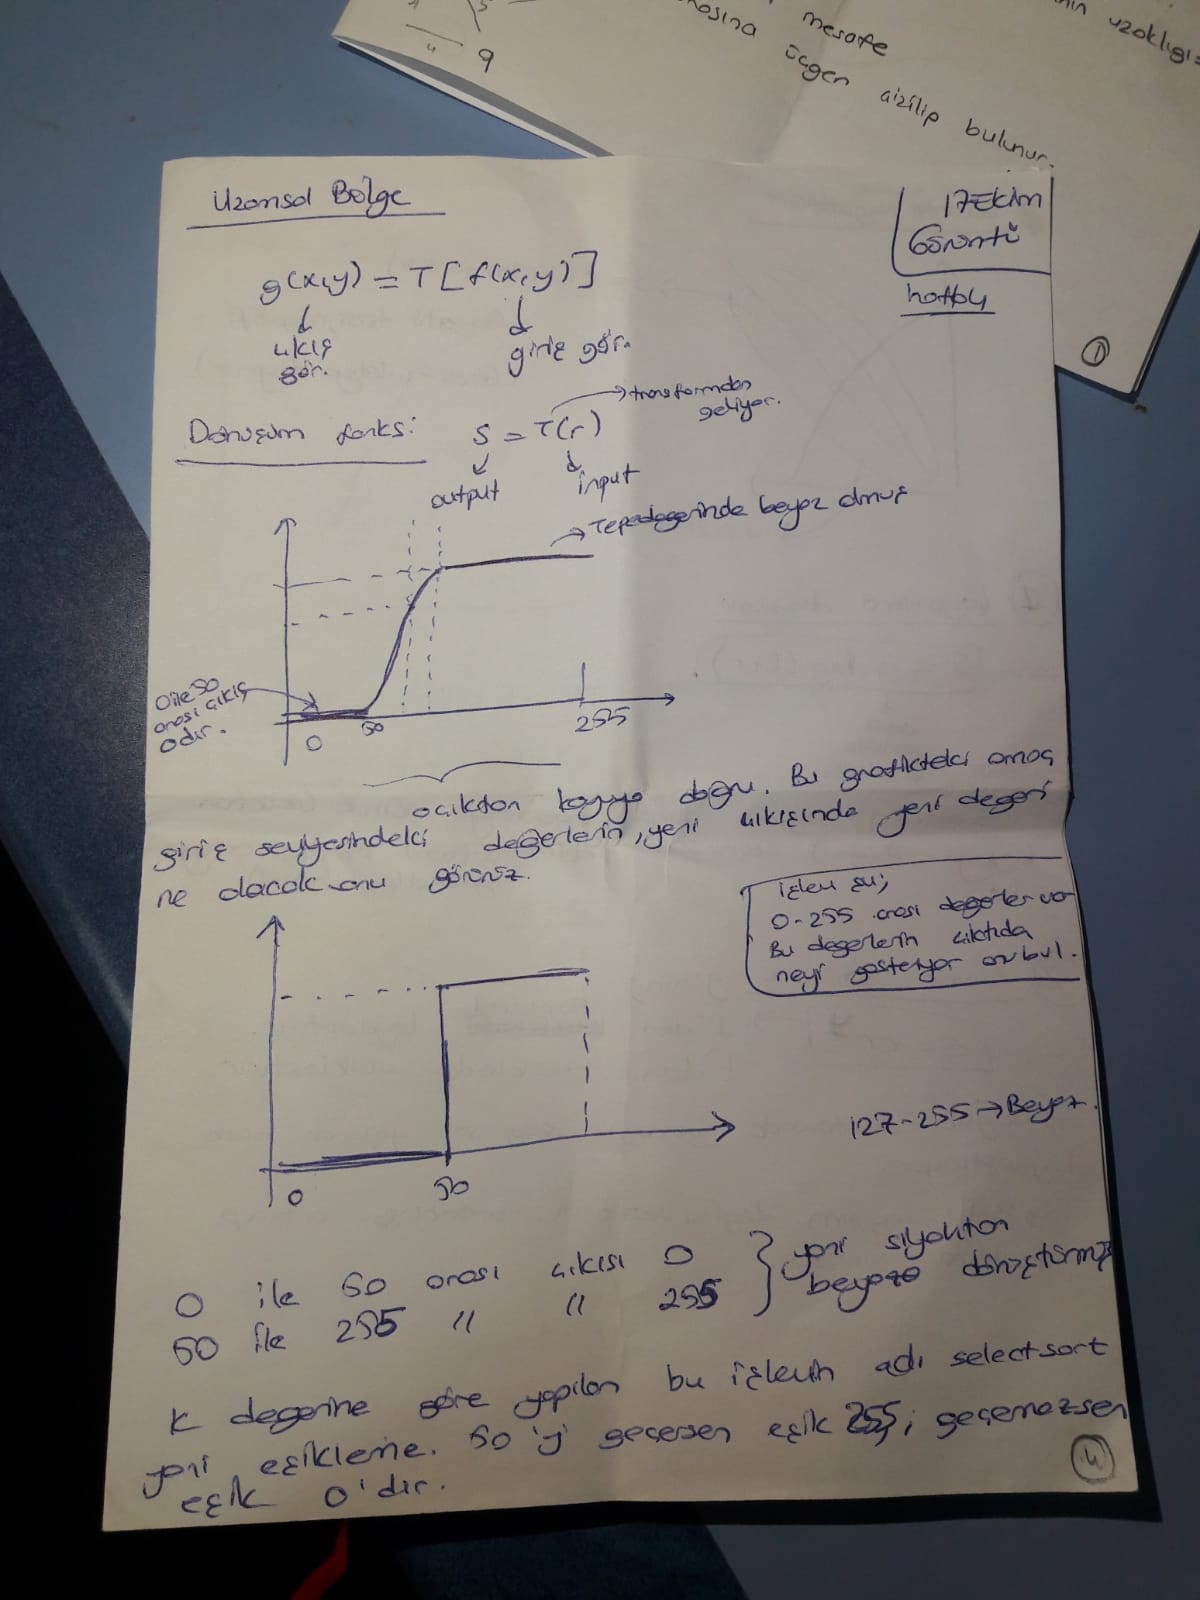 mesafe
üçgen çizilip bulunur.
9
①
17 Ekim
Görüntü
haftası
Uzamsal Bölge
g(x,y) = T[f(x,y)]
çıkış
gör.
giriş gör.
transformdan
geliyor.
Dönüşüm fonks:
S = T(r)
output
input
Tepe değerinde beyaz olmuş
0 ile 50
arası çıkış
0dır.
0
50
255
açıktan koyuya doğru. Bu grafikteki amaç
giriş seviyesindeki değerlerin, yeni çıkışında yeni değeri
ne olacak onu görürüz.
işlem şu;
0-255 arası değerler var
Bu değerlerin çıktıda
neyi gösteriyor onu bul.
0
50
127-255 → Beyaz.
0 ile 50 arası çıkışı 0
50 ile 255 " " 255
yani siyahtan
beyaza dönüştürmüş
K değerine göre yapılan bu işlemin adı selectsort
yani eşikleme. 50'yi geçersen eşik 255; geçemezsen
eşik 0'dır.
4